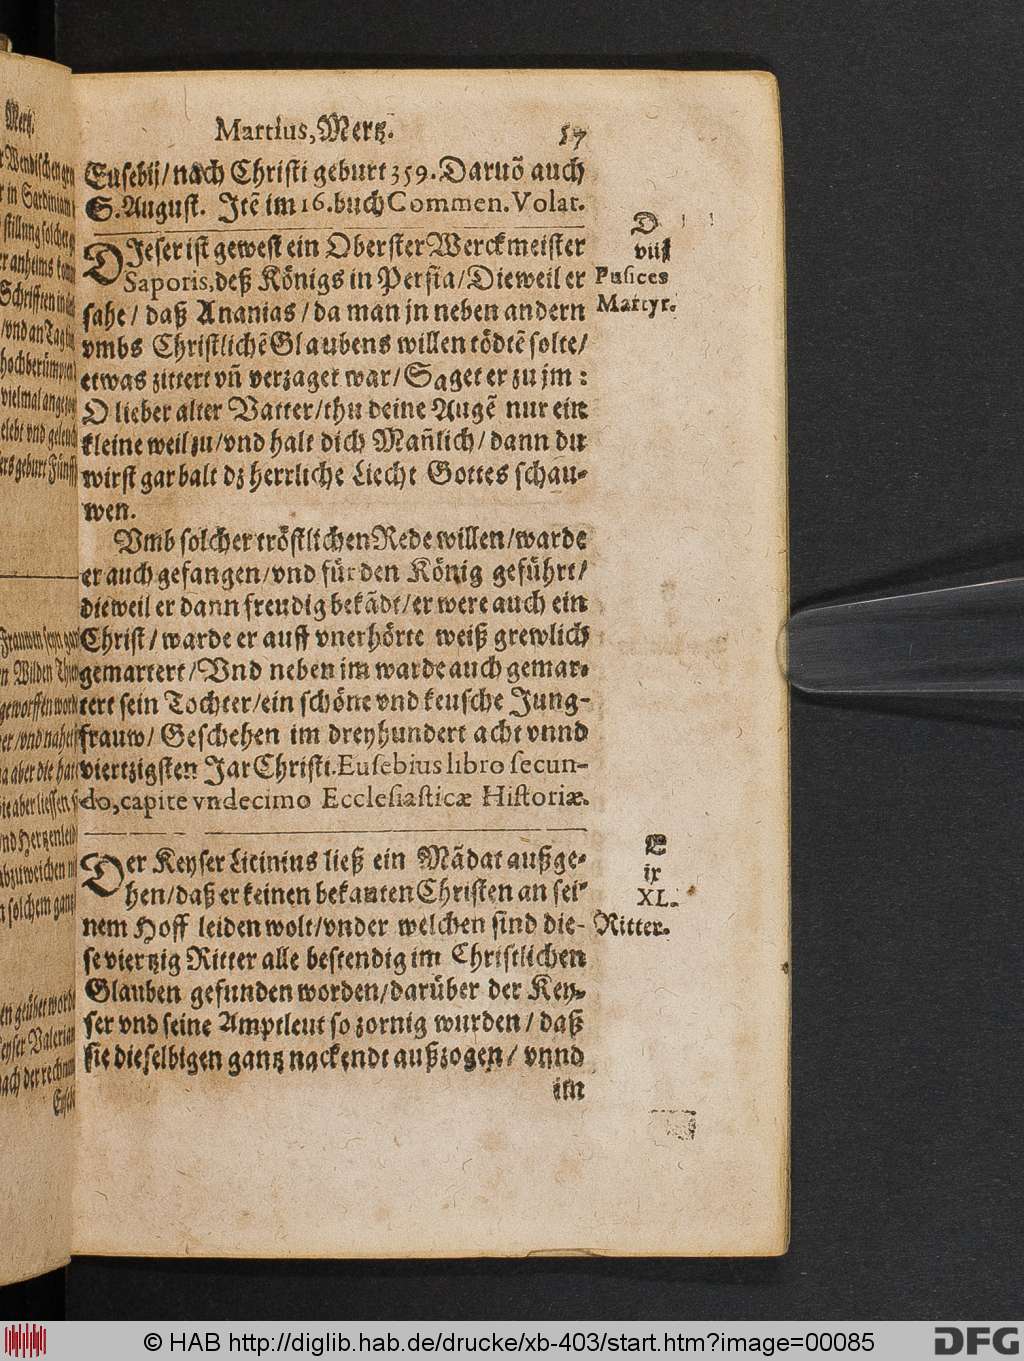 Martius, Mertz. 57
Eusebij/ nach Christi geburt 359. Daruõ auch
S. August. Itẽ im 16. buch Commen. Volat.
DIeser ist gewest ein Oberster Werckmeister
Saporis, deß Königs in Persia/ Dieweil er
sahe/ daß Ananias/ da man jn neben andern
vmbs Christlichẽ Glaubens willen tödtẽ solte/
etwas zittert vñ verzaget war/ Saget er zu jm:
O lieber alter Vatter/ thu deine Augẽ nur ein
kleine weil zu/ vnd halt dich Mañlich/ dann du
wirst gar balt dz herrliche Liecht Gottes schau-
wen.
D
viij
Pusices
Martyr.
Vmb solcher tröstlichen Rede willen/ warde
er auch gefangen/ vnd für den König geführt/
dieweil er dann freudig bekãdt/ er were auch ein
Christ/ warde er auff vnerhörte weiß grewlich
gemartert/ Vnd neben im warde auch gemar-
tert sein Tochter/ ein schöne vnd keusche Jung-
frauw/ Geschehen im dreyhundert acht vnnd
viertzigsten Jar Christi. Eusebius libro secun-
do, capite vndecimo Ecclesiasticæ Historiæ.
Der Keyser Licinius ließ ein Mãdat außge-
hen/ daß er keinen bekanten Christen an sei-
nem Hoff leiden wolt/ vnder welchen sind die-
se viertzig Ritter alle bestendig im Christlichen
Glauben gefunden worden/ darüber der Key-
ser vnd seine Amptleut so zornig wurden/ daß
sie dieselbigen gantz nackendt außzogen/ vnnd
im
E
ix
XL.
Ritter.
© HAB http://diglib.hab.de/drucke/xb-403/start.htm?image=00085
DFG